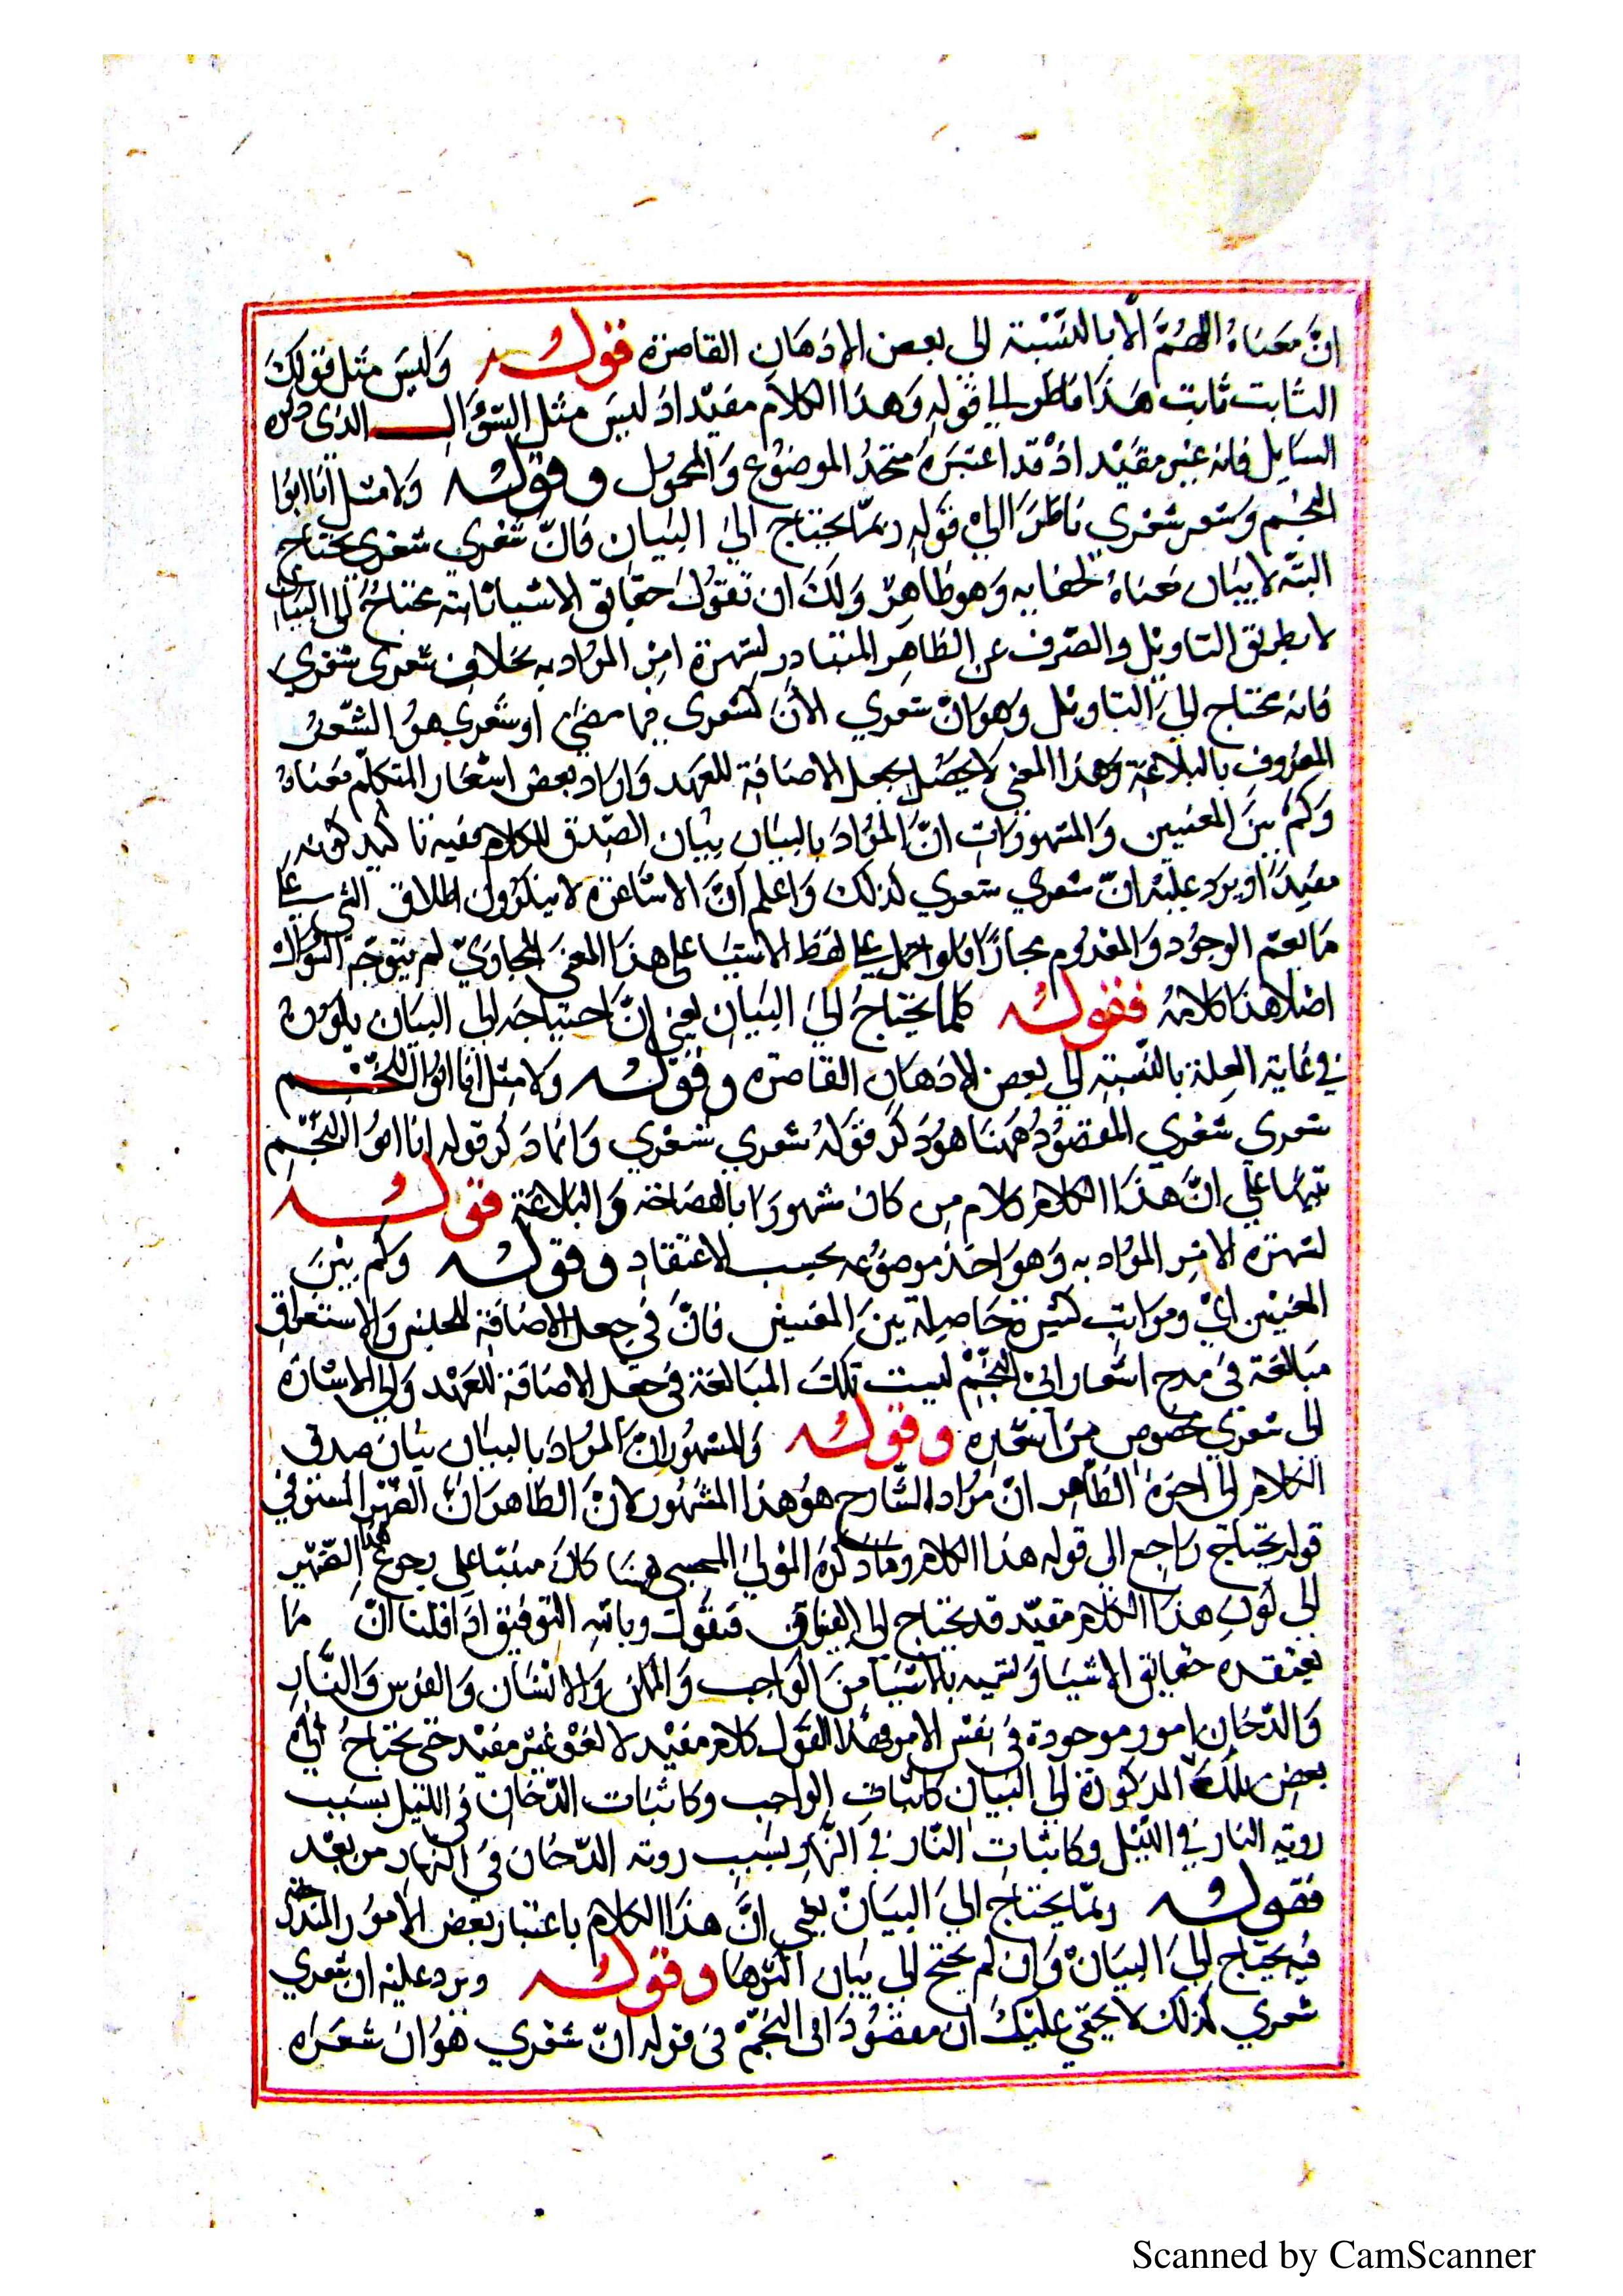 انَّ معناهُ الاضمَّ الا بالنّسْبة الى بعض الاذهان القاصرة فقولـه وَليسَ مثل قولكَ
الثابت ثابت هَذا ناظر الى قوله وَهذا الكلام مفيد اذ ليسَ مثل السّؤال الذى ذكره
السَايل فانه غير مفيد اذْ قد اعتبرَه متحدُ الموضوُع وَالمحموُل وقولـه وَلا مثل انا ابوُا
النجْم وَشعر شعري ناظرَ الىَ قوله ربمّا يحتاج الىَ البيَان فانّ شعري شعري يحتاج
البتّه لا بيَان معناهُ لخفايه وَهو ظاهِر وَلكَ ان تقوُلَ حقايق الاشيا ثابته يحتاجُ الى البيَان
لا بطريق التاويل والصّرف عن الظاهِر المتبَادِر لشهرة امر المرُاد به بخلاف شعرى شعري
فانه يحتاج الىَ التاويل وَهوَ انّ شعري الآنَ كشعرى فيما مضىَ او شعري هوُ الشّعرُ
المعرُوف بالبلاغة وَهذا المعنى لا يحصُل بجعل الاضافة للعهد وَاراد بعض اشعار المتكلّم معناهُ
وَكمْ بينَ المعنيين وَالمشهور اتِ انَّ المُرادَ بالبيَان بيَان الصّدق للكلام مفيه تاكيد كونه
مفيدًا او يرد عليْه انّ شعري شعري كذلكَ وَاعلم انَّ الاشَاعرة لا ينكرُون اطلاق الشىء على
مَا يعم الوجوُد وَالمعدُوم مجازًا فلو احمل على لفظ الاشيَا على هذا المعنىَ المجازيّ لم يتوجّه السّؤالُ
اصْلا هذا كلامُه فقولـه كلما يحتاجُ الىَ البيَان يعني انَّ احتياجَه الى البيَان يكوُن
في غاية القلة بالنّسْبة الى بعض الاذهان القاصرة وقولـه وَلا مثل انا ابوُا النّجْم
شعري شعري المقصوُدُ ههُنا هوُ ذكر قوَلهُ شعري شعري وَانما ذكر قوله انا ابوُ النجّم
تنبيها على انَّ هذا الكلام كلام من كان مشهورَا بالفصَاحة وَالبلاغة فقولـه
لشهرة الامر المرُاد به وَهو اخذ موضوُعه بحسب الاعتقاد وقولـه وَكمْ بينَ
المعنيَين ايْ ومرَاتب كثيرة حَاصلة بينَ المعنيين فانَّ في جعل الاضافة للجنس وَالاستغراق
مبَالغة في مدح اشعار ابى النجّمْ ليست تلكَ المبَالغة في جعْل الاضَافة للعَهْد وَالى الاشارَة
الى شعري مخصوص من اشعَاره وقولـه وَالمشهوُر انّ المُرادَ بالبيَان بيَان صدق
الكلام الى اخرهُ الظاهر انّ مُراد الشّارح هوُ هذا المشهُور لانّ الظاهرَ انَّ الضّمير المسْتوُفي
قوله يحتاج رَاجع الى قوله هذا الكلام ومَا ذكرَهُ الموْلىَ المحشى ههنَا كانَ مبنَيّا على رجوع هذا الضّمير
الى كون هذا الكلام مفيّد قد يحتاج الى البيَان فنقُول وباللهِ التوفيق اذَا قلنا انّ مَا
نعتقده حقايق الاشيَا وَنسمّيه بالاشيَا منَ الوَاجب وَالممكن وَالانسَان وَالفرَس وَالنَّار
وَالدّخان امور موجودة في نفسْ الامر فهَذا القوْل كلام مفيْد لا لغْو غيْر مفيْد حتى يحتاجُ الى
بعض تلكَ المذكورَة الى البيَان كاثبَات الواجب وكاثبَات الدّخان في الليْل بسَبب
روية النار في الليْل وكاثبات النّار في النّهار بسَبب روية الدّخان في النهار من بعْد
فقولـه ربمّا يحتاجَ الىَ البيَانّ يعني انَّ هذا الكلام باعتبار بعض الامُور المندرجة
فيه يحتاج الىَ البيَان وَان لم يحتج الى بيَان اكثرهَا وقولـه ويرد عليْه ان شعري
شعري كذلكَ لا يخفي عليْكَ انّ مقصُودَ ابى النجّمْ في قوله انّ شعري هوُ انَ شعَرَه
Scanned by CamScanner